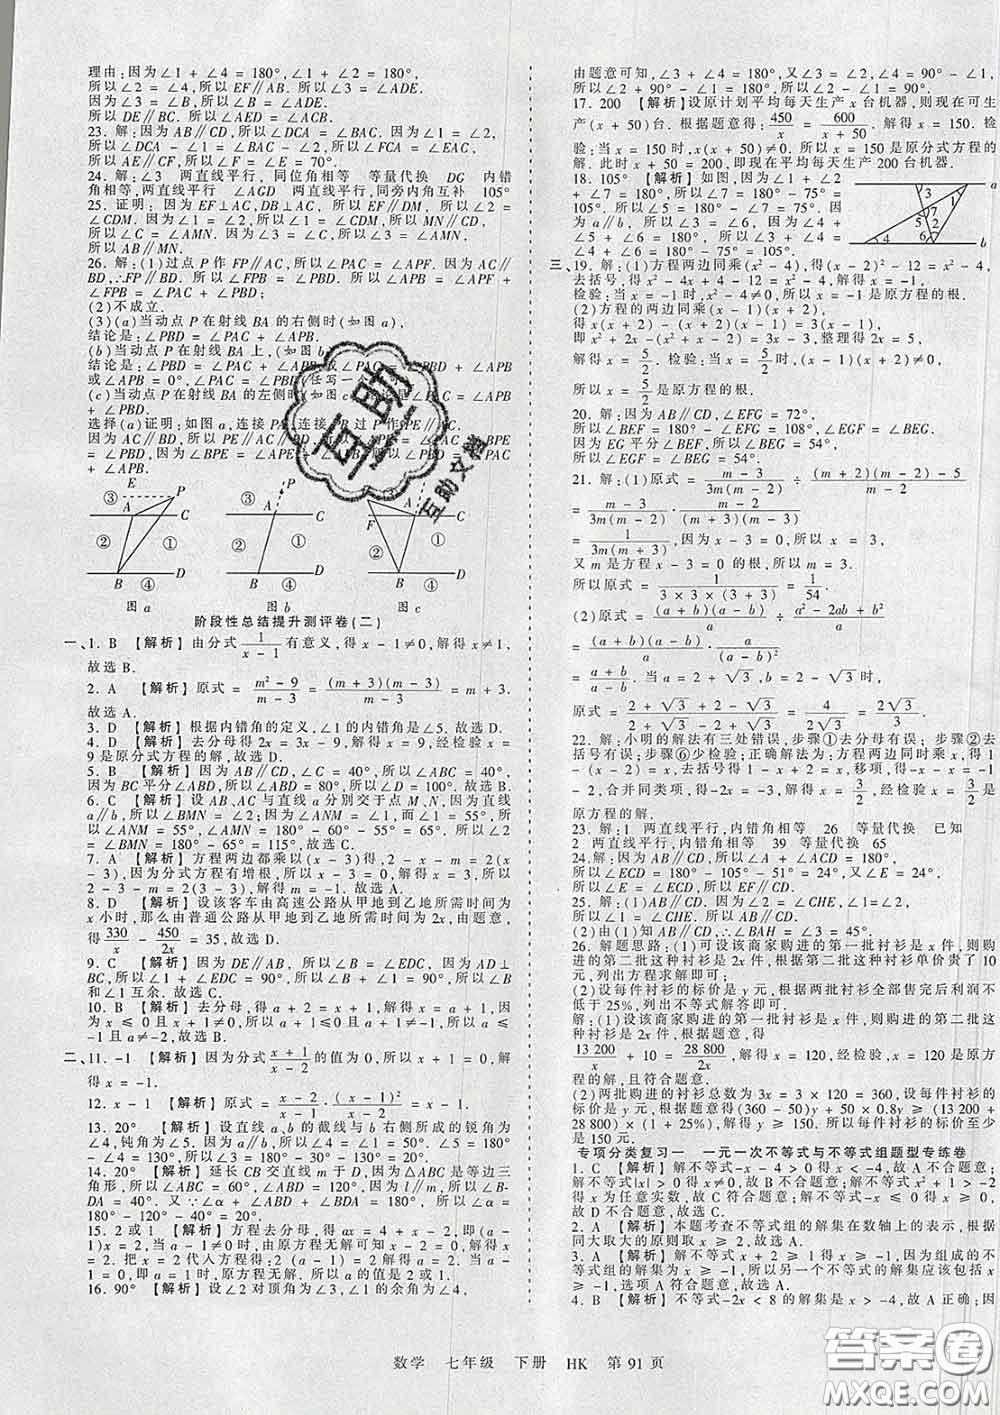 理由:因为∠1 + ∠4 = 180°,∠1 + ∠2 = 180°,
所以∠2 = ∠4,所以EF∥AB. 所以∠3 =
因为∠3 = ∠B,所以∠B =
所以DE∥BC. 所以∠AED = ∠ACB.
23. 解:因为AB∥CD,所以∠DCA = ∠BAC. 因为∠1 = ∠2,
所以∠DCA - ∠1 = ∠BAC - ∠2,所以∠FCA = ∠EAC,
所以AE∥CF,所以∠F = ∠E = 70°.
24. 解:∠3 两直线平行, 同位角相等 等量代换 DG 内错
角相等,两直线平行 ∠AGD 两直线平行,同旁内角互补 105°
25. 证明:因为EF⊥AC,DB⊥AC,所以EF∥DM,所以∠2 =
∠CDM. 因为∠1 = ∠2,所以∠1 = ∠CDM,所以MN∥CD,
所以∠C = ∠AMN. 因为∠3 = ∠C,所以∠3 = ∠AMN.
26. 解:(1)过点P作FP∥AC,所以∠PAC = ∠APF. 因为AC∥
BD,∴FP∥BD. 所以∠FPB = ∠PBD. 所以∠APB = ∠APF +
∠FPB = ∠PAC + ∠PBD.
(2)不成立.
(3)(a)当动点P在射线BA的右侧时(如图a),
结论是:∠PBD = ∠PAC + ∠APB.
(b)当动点P在射线BA上,(如图b
结论是:∠PBD = ∠PAC + ∠APB 或∠PAC = ∠PBD + ∠APB
或∠APB = 0° ∠PAC = ∠PBD(任写一
(c)当动点P在射线BA的左侧时(如图
∠APB + ∠PBD.
选择(a)证明:如图a,连接PA,连接PB过P作PE∥AC
因为AC∥BD,所以PE∥BD,所以
∠PBD. 因为∠BPE = ∠APE + ∠APB,
∠PAC + ∠APB.
E P ③ A C ② ① B ④ D
③ P A C ② ① B ④ D
P ③ F A C ② ① B ④ D
图a 图b 图c
阶段性总结提升测评卷(二)
一、1. B 【解析】由分式1/(x - 1)有意义,得x - 1≠0,解得x≠1,
故选B.
2. A 【解析】原式 = (m² - 9)/(m - 3) = (m + 3)(m - 3)/(m - 3) = m + 3.
故选A.
3. D 【解析】根据内错角的定义,∠1的内错角是∠5. 故选D.
4. D 【解析】去分母得2x = 3x - 9,解得x = 9,经检验x =
9是原分式方程的解,故选D.
5. B 【解析】因为AB∥CD,所以∠ABC = ∠C = 40°,因
为BC平分∠ABD,所以∠ABD = 80°,所以∠D = 100°. 故选B.
6. C 【解析】设AB、AC与直线a分别交于点M、N,因为直线
a∥b,所以∠BMN = ∠2,因为∠ANM = ∠1,而∠1 = 55°,所以
∠ANM = 55°,∠AMN = 180° - 60° - 55° = 65°,所以∠2 =
∠BMN = 180° - 65° = 115°,故选C.
7. A 【解析】方程两边都乘以(x - 3),得2 - x - m = 2(x -
3),因为分式方程有增根,所以x - 3 = 0,解得x = 3,所以
2 - 3 - m = 2(3 - 3),解得m = -1. 故选A.
8. D 【解析】设该客车由高速公路从甲地到乙地所需时间为
x小时,那么由普通公路从甲地到乙地所需时间为2x,由题意,
得330/x - 450/2x = 35,故选D.
9. C 【解析】因为DE∥AB,所以∠B = ∠EDC,因为AD⊥
BC,所以∠1 + ∠EDC = 90°,所以∠1 + ∠B = 90°,所以∠B
和∠1互余. 故选C.
10. B 【解析】去分母,得a + 2 = x + 1,解得x = a + 1,因
为x ≤ 0且x + 1≠0,所以a + 1≤0且a + 1≠-1,所以a ≤
-1且a≠-2. 故选B.
二、11. -1 【解析】因为分式(x + 1)/(x - 1)的值为0,所以x + 1 = 0,解
得x = -1.
12. x - 1 【解析】原式 = x/(x - 1)·(x - 1)²/x = x - 1.
13. 20° 【解析】设直线a、b的截线与b右侧所成的锐角为
∠4,钝角为∠5. 因为a∥b,所以∠1 = ∠4. 所以∠5 = 180° -
∠4 = 130°,所以∠3 = 180° - 30° - 130° = 20°.
14. 20° 【解析】延长CB交直线m于D,因为△ABC是等边三
角形,所以∠ABC = 60°,因为l∥m,所以∠1 = 40°. 所以∠α =
180° - 120° - 40° = 20°.
15. 2或1 【解析】方程去分母,得ax = 4 + x - 2,即(a -
1)x = 2,当a - 1 = 0时,由原方程无解可得a = 1;当x - 2 = 0,即x
= 2. 把x = 2代入方程得:2(a - 1) = 2 解得a = 2. 综上,当a = 1或2
时,原方程无解. 所以a的值是2或1.
16. 90° 【解析】设∠2的对顶角为∠3,∠1的余角为∠4,
由题意可知,∠3 + ∠4 = 180°,又∠3 = ∠2,∠4 = 90° - ∠1,
所以∠2 + 90° - ∠1 = 180°,所以∠2 - ∠1 = 90°.
17. 200 【解析】设原计划平均每天生产x台机器,则现在可生
产(x + 50)台. 根据题意得:450/x = 600/(x + 50). 解得x = 150. 检
验:当x = 150时,x(x + 50)≠0. 所以x = 150是原分式方程的
解. 此时x + 50 = 200,即现在平均每天生产200台机器.
18. 105° 【解析】如图,因为∠1 + ∠2
+ ∠7 = 180°,所以∠7 = 180° - 75° =
105°. 所以∠6 = 180° - ∠7 = 75°. 因
为a∥b,所以∠3 = ∠6,因为∠3 =
∠4 + ∠5 = ∠6,所以∠4 +
∠5 + ∠6 = 180°,所以
75° = 105°.
3 1 5 7 2 4 6
三、19. 解:(1)方程两边同乘(x² - 4),得(x - 2)² - 12 = x² - 4,
去括号,得x² - 4x + 4 - 12 = x² - 4,解得x = -1.
检验:当x = -1时,x² - 4≠0,所以x = -1是原方程的根.
(2)方程两边同乘(x - 1)(x + 2),
得x(x + 2) - (x + 2)(x - 1) = 3x(x - 1),
即x² + 2x - (x² + x - 2) = 3x - 3,整理得2x = 5,
解得x = 5/2. 检验:当x = 5/2时,(x - 1)(x + 2)≠0,
所以x = 5/2是原方程的根.
20. 解:因为AB∥CD,∠EFG = 72°,
所以∠BEF = 180° - ∠EFG = 108°,∠EGF = ∠BEG.
因为EG平分∠BEF,所以∠BEG = 1/2∠BEF = 54°,
所以∠EGF = ∠BEG = 54°.
21. 解:(1)原式 = (m - 3)/3m(m - 2) ÷ (m + 2)(m - 2) - 5/(m - 2)
= (m - 3)/3m(m - 2)·(m - 2)/(m + 3)(m - 3)
= 1/3m(m + 3),因为x - 3 = 0,所以x = 3,
又m是方程x - 3 = 0的根,所以m = 3,
所以原式 = 1/(3 × 3 × (3 + 3)) = 1/54
(2)原式 = (a + b)(a - b)/a ÷ (a² - 2ab + b²)/a
= (a + b)(a - b)/a·a/(a - b)²
= (a + b)/(a - b). 当a = 2 + √3,b = 2 - √3时,
原式 = (2 + √3 + 2 - √3)/(2 + √3 - 2 + √3) = 4/2√3 = 2√3/3
22. 解:小明的解法有三处错误,步骤①去分母有误; 步骤②去
括号有误;步骤⑥少检验;正确解法为:方程两边同时乘x,得1
- (x - 2) = x,去括号,得1 - x + 2 = x,移项,得-x - x = -1
- 2,合并同类项,得-2x = -3,解得x = 3/2,经检验x = 3/2是
原方程的解.
23. 解:1 两直线平行,内错角相等 26 等量代换 已知
2 两直线平行,内错角相等 39 等量代换 65
24. 解:因为EC∥AD,所以∠A + ∠ACE = 180°. 因为∠A =
105°,所以∠ECD = 180° - 105° - 51° = 24°,因为∠E = 24°,
所以∠E = ∠ECD,所以EF∥CD.
25. 解:(1)因为AB∥CD,所以∠2 = ∠CHE. 因为∠1=∠2,
所以∠1 = ∠CHE. 所以EM∥HN.
(2)由(1)知AB∥CD,∴∠BGH = ∠3 = 45°.
26. 解题思路:(1)可设该商家购进的第一批衬衫是x件,则购
进的第二批这种衬衫是2x件,根据第二批这种衬衫单价贵了10
元,列出方程求解即可.
(2)设这种衬衫的标价是y元,根据两批衬衫全部售完后利润不
低于25%,列出不等式解答即可.
解:(1)设该商家购进的第一批衬衫是x件,则购进的第二批这
种衬衫是2x件,根据题意,得
13 200/x + 10 = 28 800/2x,解得x = 120,经检验,x = 120是原方
程的解,且符合题意.
(2)两批购进的衬衫总数为3x = 3 × 120 = 360,设每件衬衫的
标价是y元,根据题意得(360 - 50)y + 50 × 0.8y ≥ (13 200 +
28 800) × (1 + 25%),解得y ≥ 150. 所以每件衬衫的标价至少
是150元.
专项分类复习一 一元一次不等式与不等式组题型专练卷
1. C 【解析】解不等式-x - 4 > 0得x < -4,故A不合题意;
解不等式|x| > 0得x≠0,故B不合题意;
故D不合题意,故选C.
2. A 【解析】本题考查不等式组的解集在数轴上的表示,根据
同大取大的原则则取x > 2,故选A.
3. A 【解析】x + 2 ≥ 1得x ≥ -1,因为组成的不等
式组的解集为x ≥ -1,所以另一个不等式的解集应该包括x
≥ -1,选项A符合题意,故选A.
4. B 【解析】不等式-2x < 8的解集是x > -4,故A正确;因
数学 七年级 下册 HK 第91页
互助
互助文档
答案圈
MXQE.COM